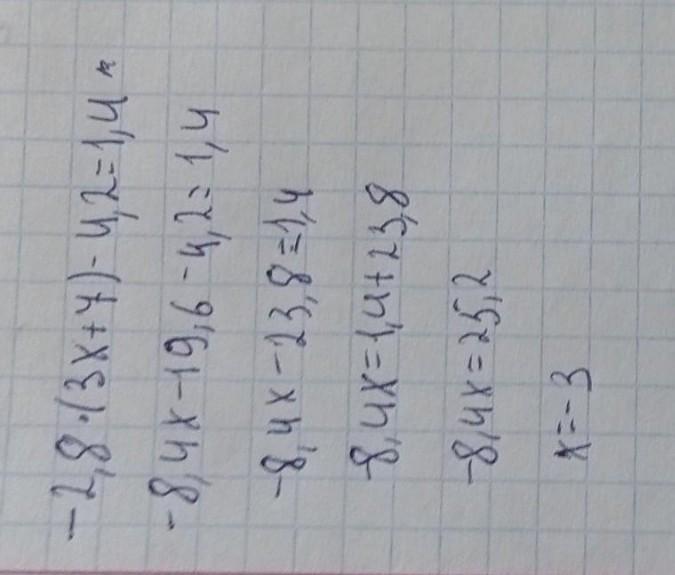 -2,8·(3x+7)-4,2=1,4
-8,4x-19,6-4,2=1,4
-8,4x-23,8=1,4
-8,4x=1,4+23,8
-8,4x=25,2
x=-3